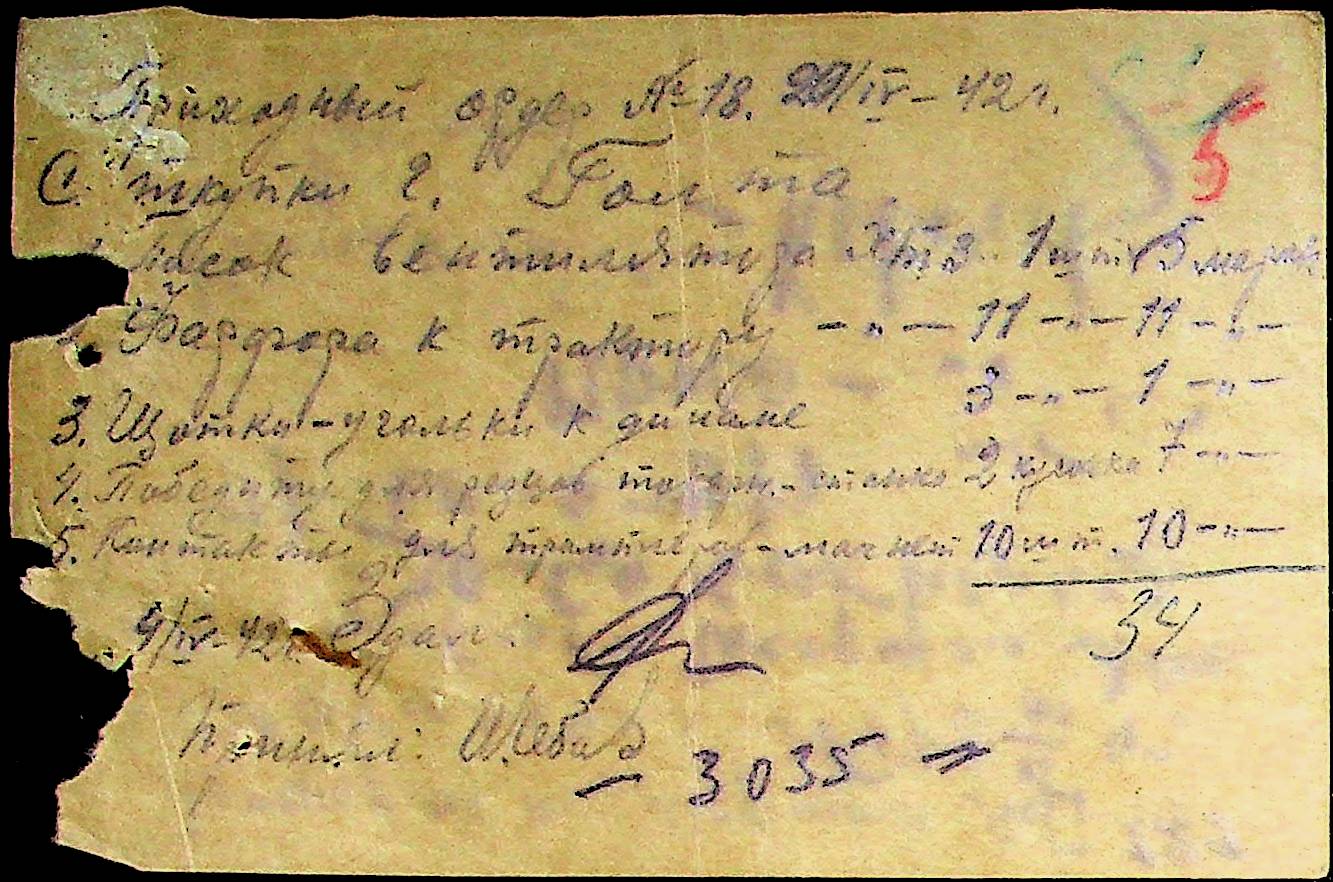 Приходный ордер № 18. 29/IV-42 г.
5
С. г. Голта
1. вентилятора ХТЗ 1 шт 5 марок
2. Фарфора к трактору -„- 11 -„- 11 -„-
3. Щотки-угольки к динаме 3 -„- 1 -„-
4. Победиту для резцов токарн. станка 2 куска 7 -„-
5. Контакты для -магнет 10 шт. 10 -„-
34
/IV-42 г. Здал:
Принял:
- 3035 =